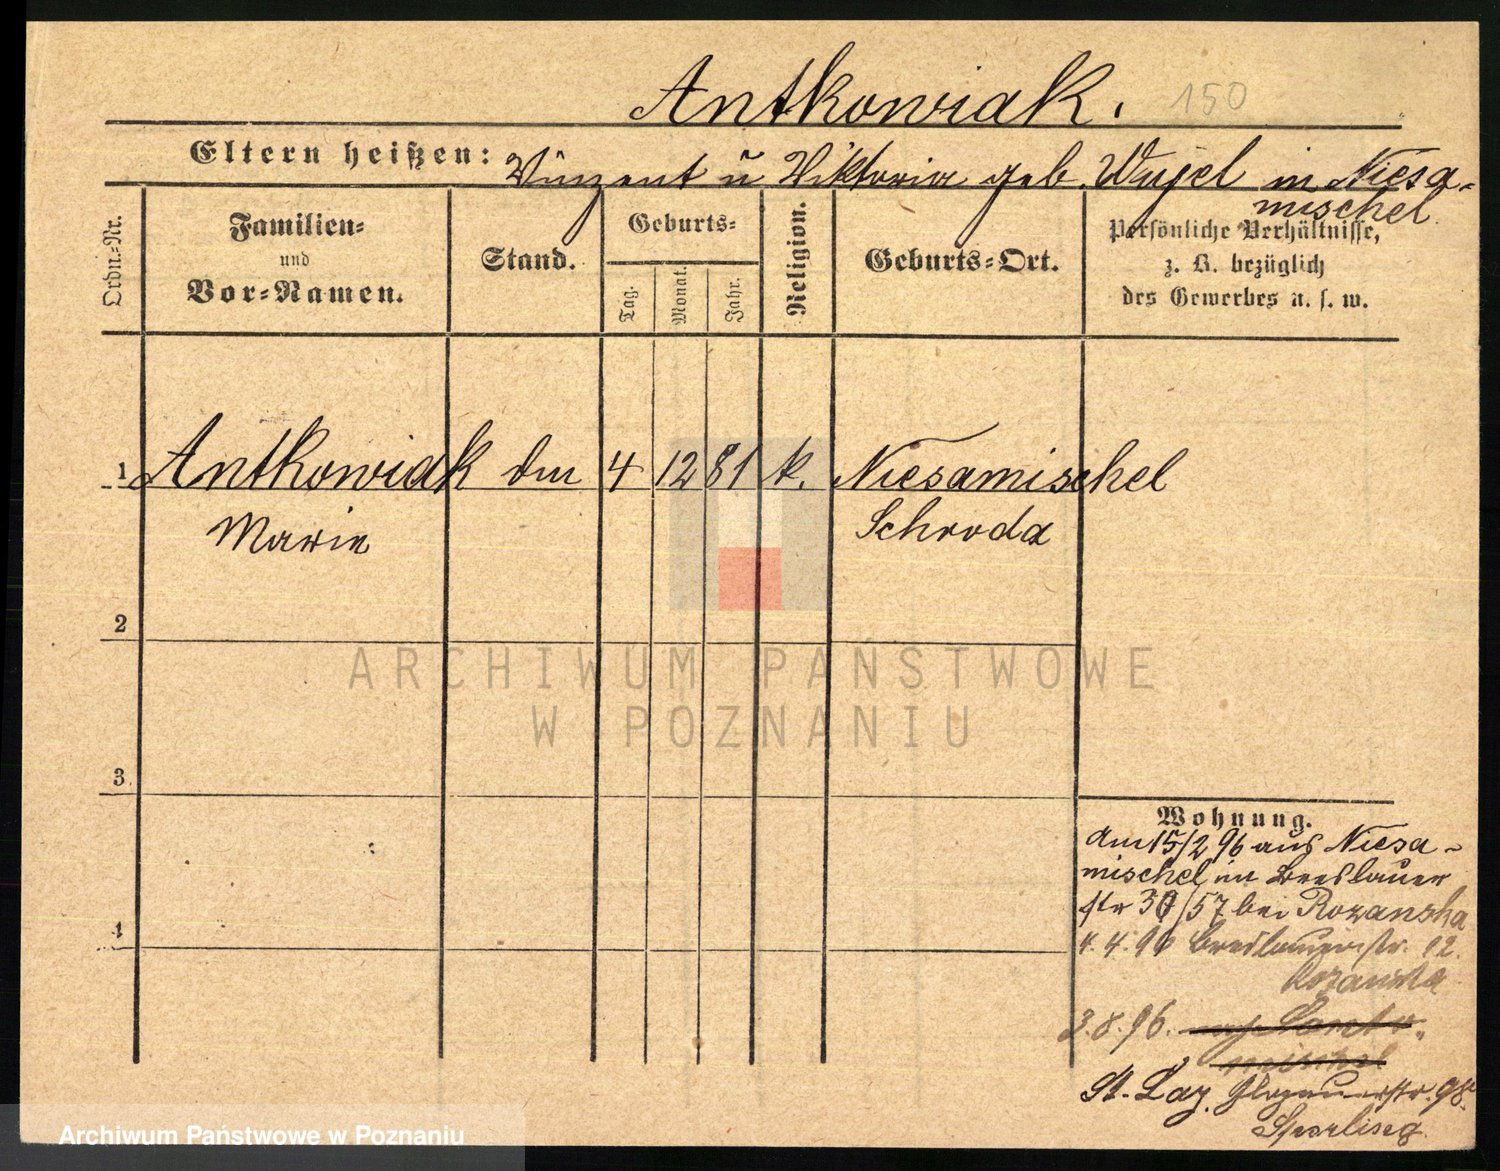 Antkowiak. 150
Eltern heißen: Vinzent u Viktoria geb. Wujel in Niesa-
mischel
Ordn.-Nr.
Familien-
und
Vor-Namen.
Stand.
Geburts-
Tag.
Monat.
Jahr.
Religion.
Geburts-Ort.
Persönliche Verhältnisse,
z. B. bezüglich
des Gewerbes u. s. w.
1 Antkowiak dm 4 12 81 k. Niesamischel
Marie Schroda
2
ARCHIWUM PAŃSTWOWE
W POZNANIU
3
Wohnung.
Am 15/2 96 aus Niesa-
mischel in Breslauer
str 30/57 bei Rozanska
4
4.4.96 Breslauerstr. 12.
Rozanska
3.8.96. Santo-
mischel
St. Laz. Glogauerstr. 98.
Archiwum Państwowe w Poznaniu